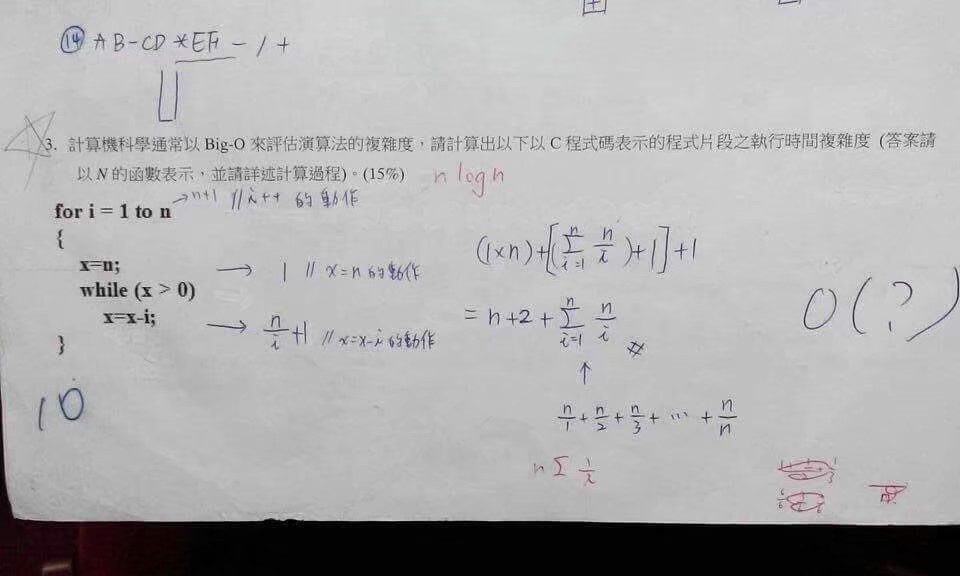 ⑭ AB-CD*EF-/+
3. 計算機科學通常以 Big-O 來評估演算法的複雜度，請計算出以下以 C 程式碼表示的程式片段之執行時間複雜度 (答案請
以 N 的函數表示，並請詳述計算過程)。(15%) n log n
for i = 1 to n → n+1 // i++ 的動作
{
x=n; → 1 // x=n 的動作
while (x > 0)
x=x-i; → n/i +1 // x=x-i 的動作
}
10
(1×n)+[(∑_{i=1}^{n} n/i)+1]+1
= n+2+∑_{i=1}^{n} n/i #
↑
n/1 + n/2 + n/3 + ... + n/n
n∑ 1/i
O(?)